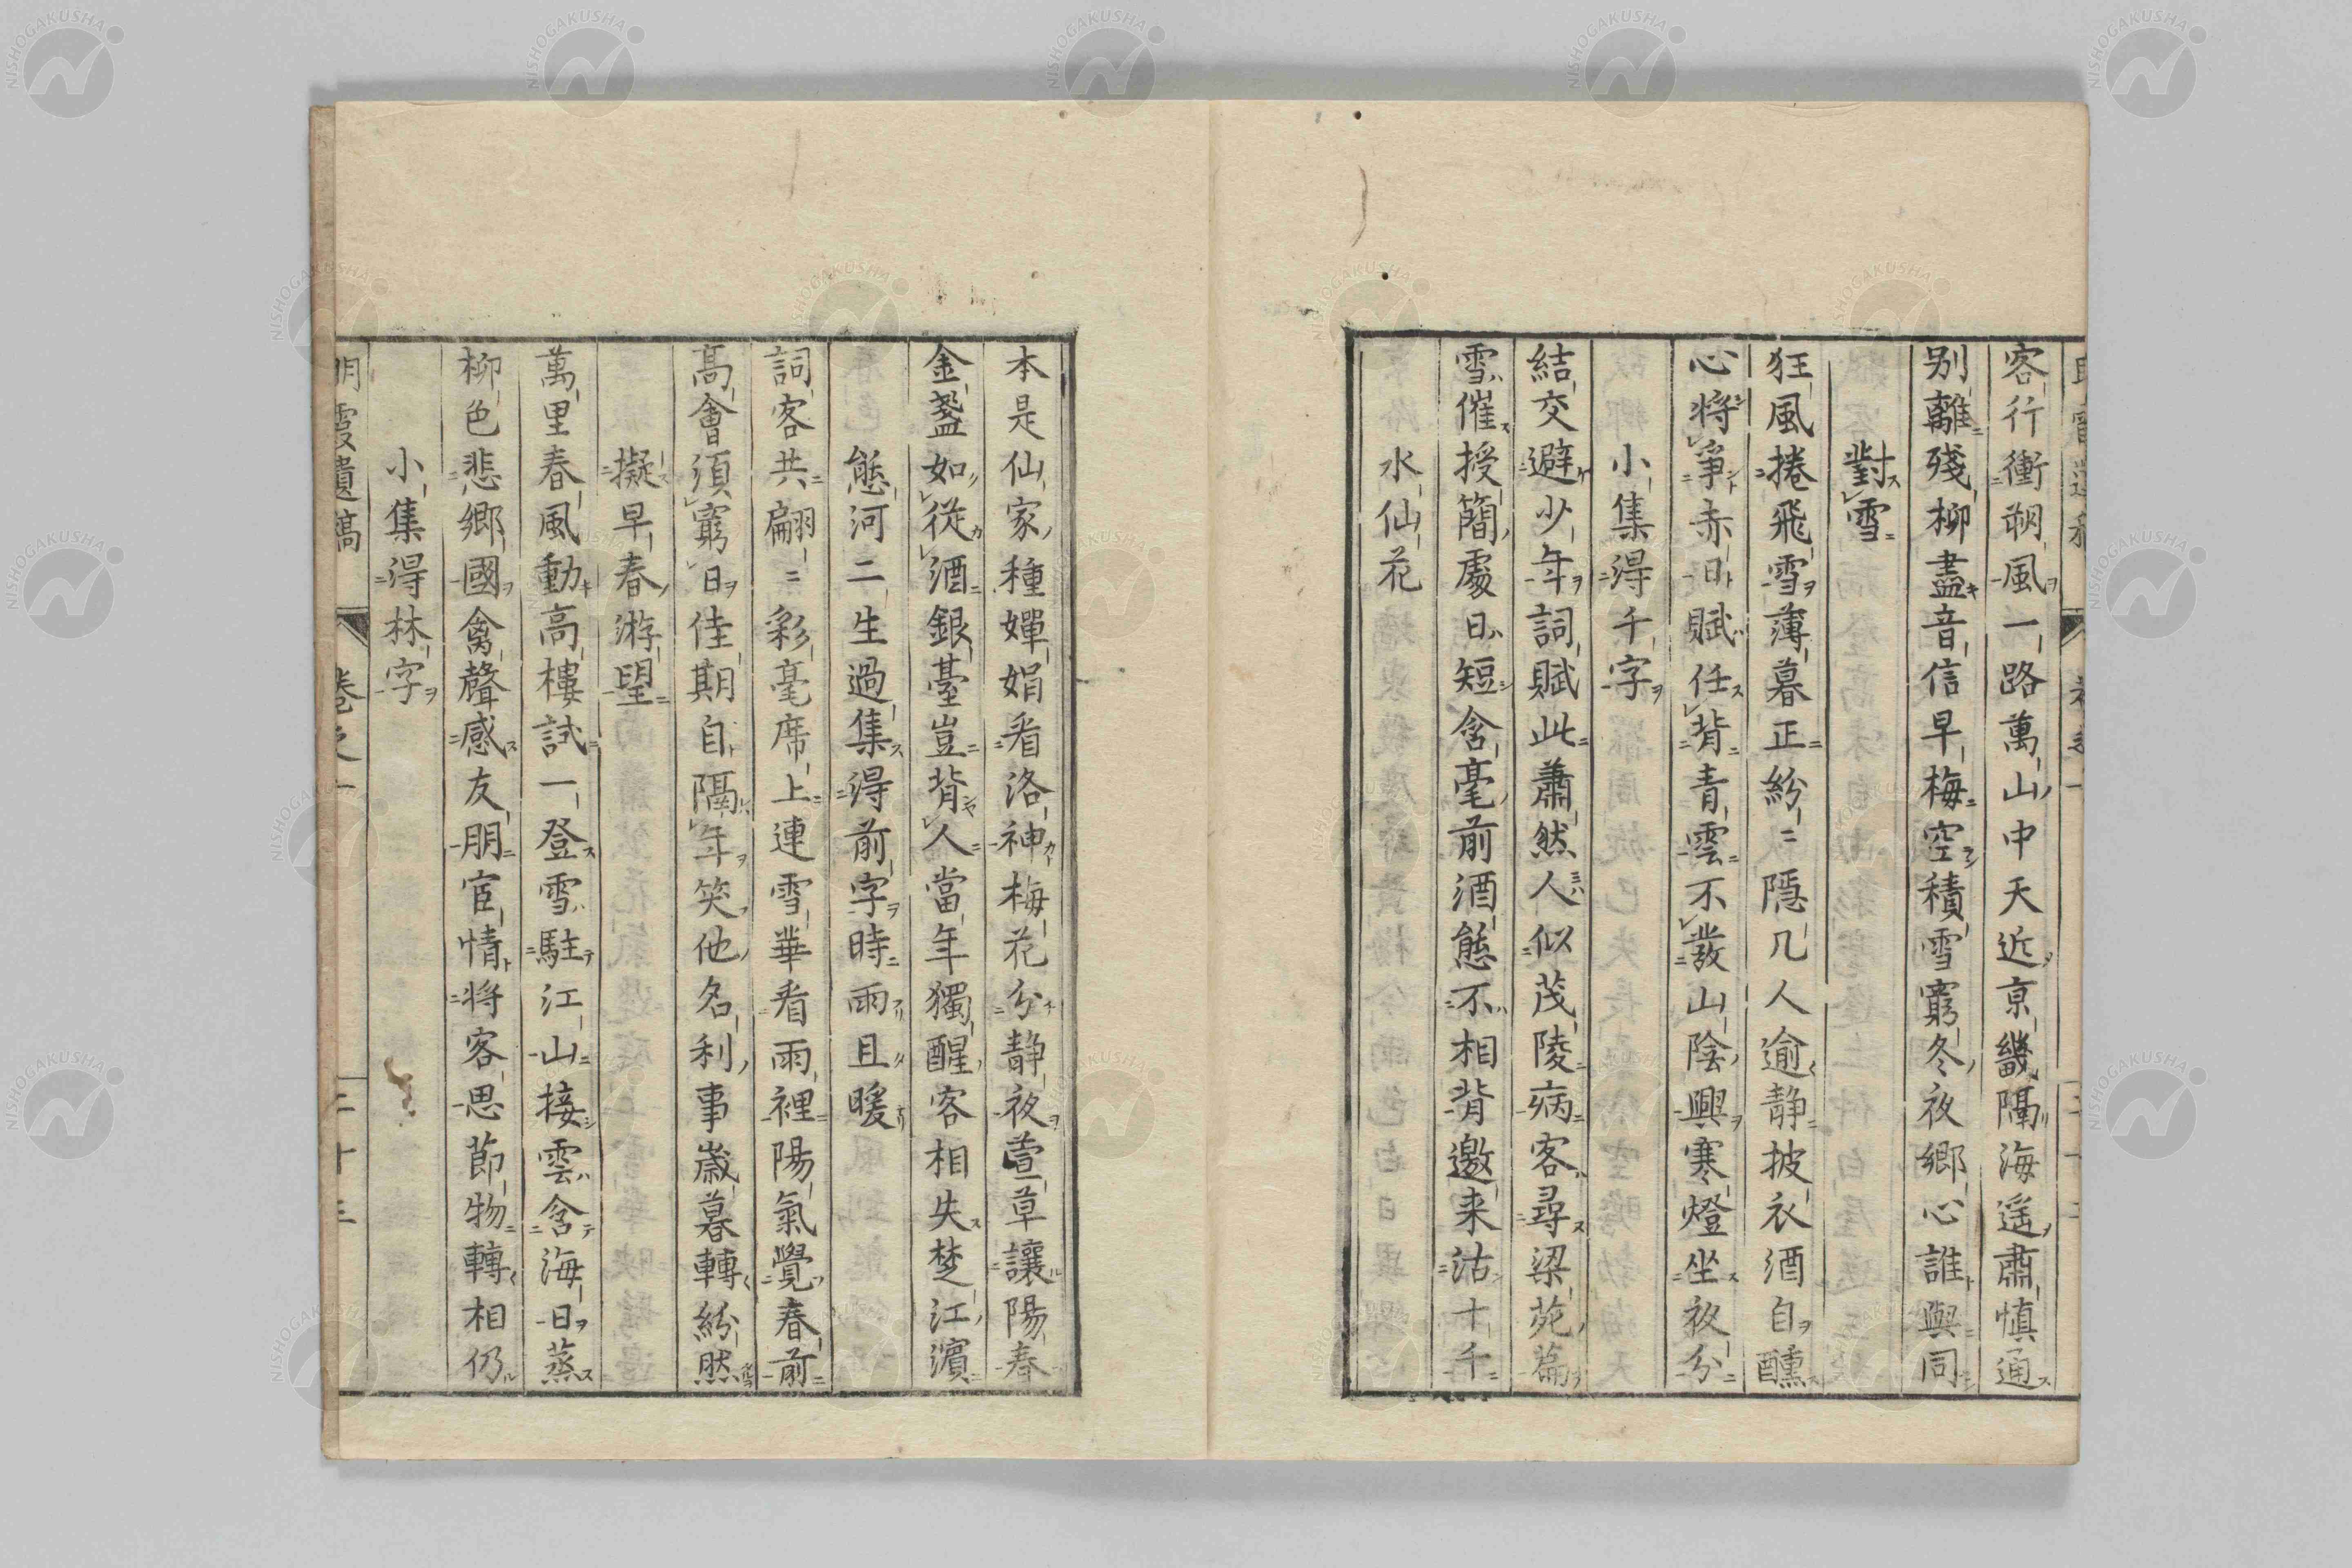 客行衝朔風一路萬山中天近亰畿隔海遥肅慎通
别離殘柳盡音信早梅空積雪窮冬夜鄉心誰與同
對雪
狂風捲飛雪薄暮正紛〻隠几人逾静披衣酒自醺
心將爭赤日賦任背青雲不發山陰興寒燈坐夜分
小集得千字
結交避少年詞賦此蕭然人似茂陵病客尋梁苑篇
雪催授簡處日短含毫前酒態不相背邀来沽十千
水仙花
本是仙家種嬋娟看洛神梅花分静夜萱草讓陽春
金盞如從酒銀臺豈背人當年獨醒客相失楚江濱
態河二生過集得前字時雨且暖
詞客共翩〻彩毫席上連雪華看雨裡陽氣覺春前
高會須窮日佳期自隔年笑他名利事歳暮轉紛然
擬早春游望
萬里春風動高樓試一登雪駐江山接雲含海日蒸
柳色悲鄉國禽聲感友朋宦情將客思節物轉相仍
小集得林字
明霞遺稿 卷之一 二十三
NISHOGAKUSHA